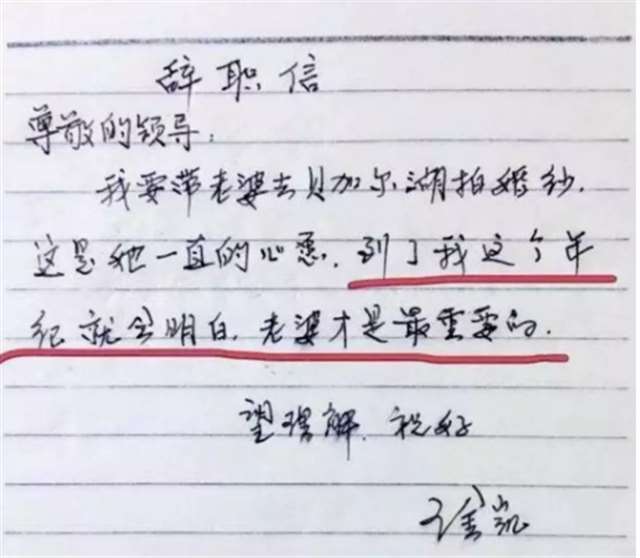 辞职信
尊敬的领导：
我要带老婆去贝加尔湖拍婚纱.
这是她一直的心愿. 到了我这个年
纪就会明白. 老婆才是最重要的.
望理解. 祝好
徐凯